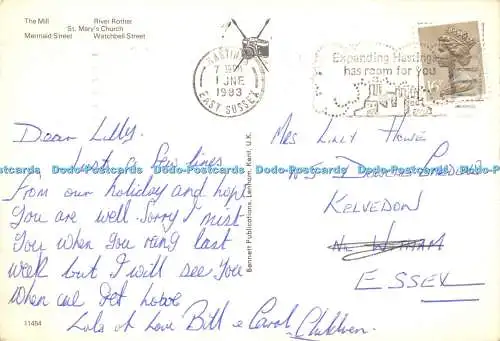 The Mill River Rother
St. Mary's Church
Mermaid Street Watchbell Street
HASTINGS
7 PM
1 JNE
1983
EAST SUSSEX
Expanding Hastings
has room for you
Dear Lilly.
Just a few lines
From our holiday and hope
You are well. Sorry I mist
You when you rang last
week but I will see you
When we get home
Lots of Love Bill & Carol - Children.
Bennett Publications, Lenham, Kent, U.K.
11454
Mrs Lilly Howe
KELVEDON
Nr WITHAM
ESSEX
Dodo-Postcards Dodo-Postcards Dodo-Postcards Dodo-Postcards Dodo-Postcards